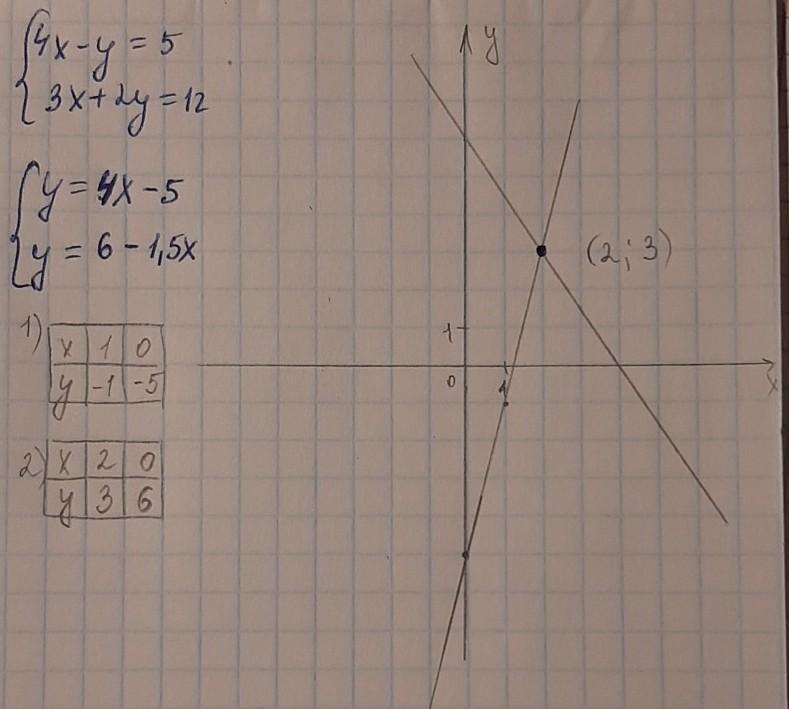 4x - y = 5
3x + 2y = 12
y = 4x - 5
y = 6 - 1,5x
1)
x 1 0
y -1 -5
2)
x 2 0
y 3 6
y
(2; 3)
1
0
1
x